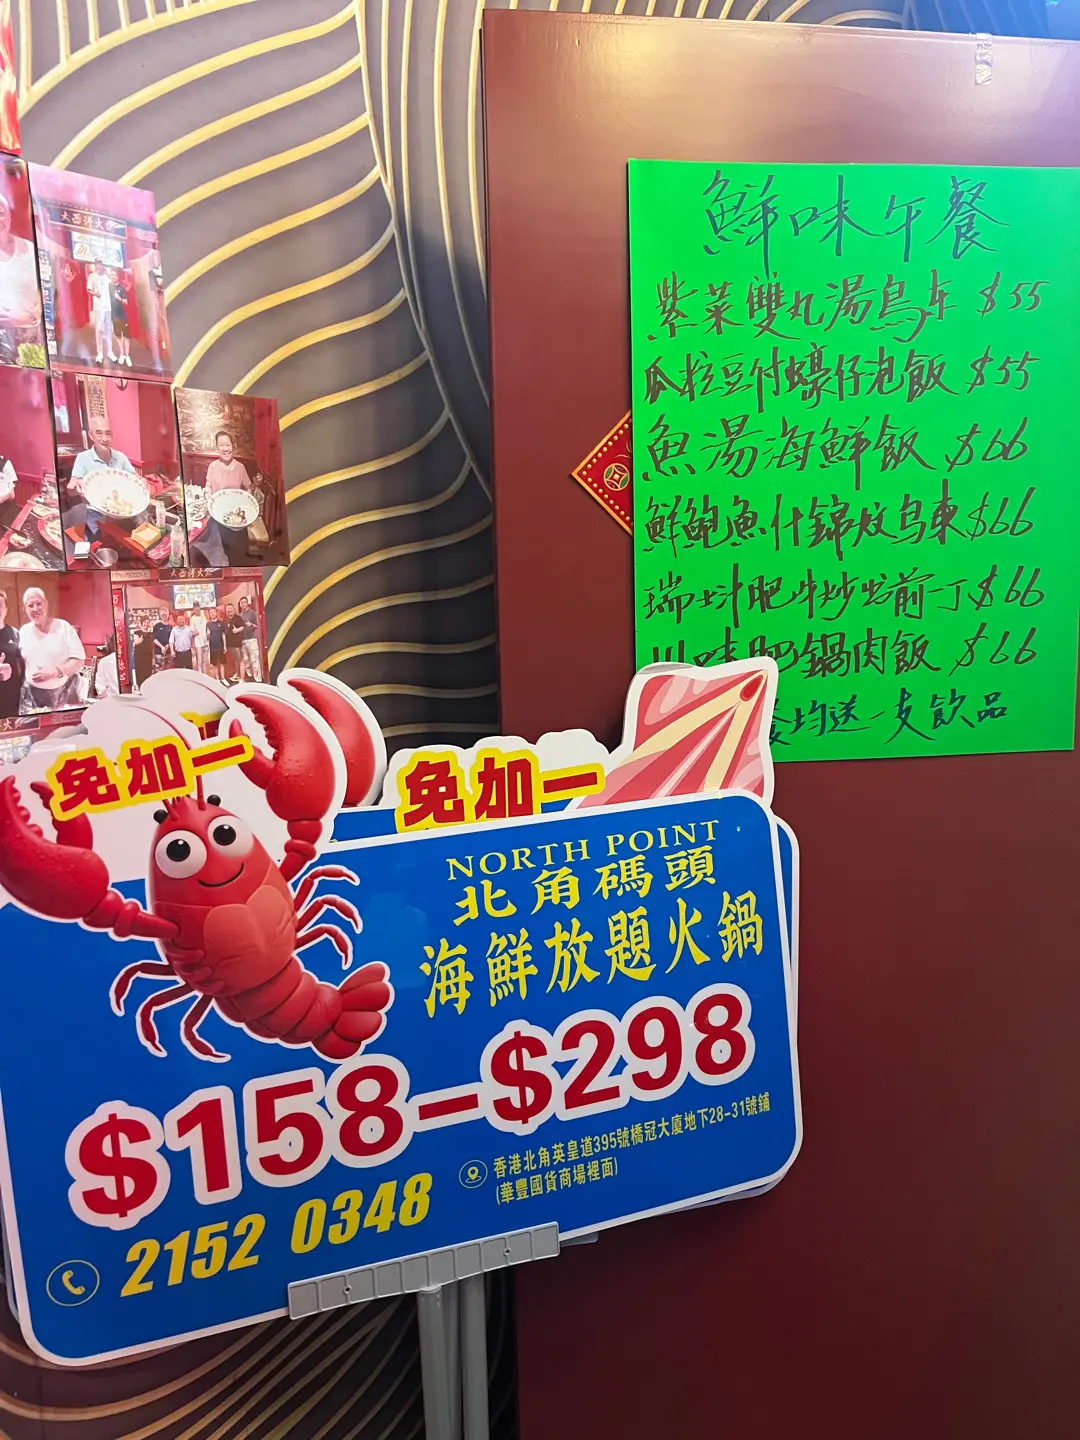 大西洋火
鮮味午餐
紫菜雙丸湯烏冬 $55
瓜粒豆付蠔仔泡飯 $55
魚湯海鮮飯 $66
鮮鮑魚什錦炆烏東 $66
瑞士汁肥牛炒出前一丁 $66
川味肥鍋肉飯 $66
餐均送一支飲品
免加一
免加一
NORTH POINT
北角碼頭
海鮮放題火鍋
$158-$298
香港北角英皇道395號橋冠大廈地下28-31號鋪
(華豐國貨商場裡面)
2152 0348